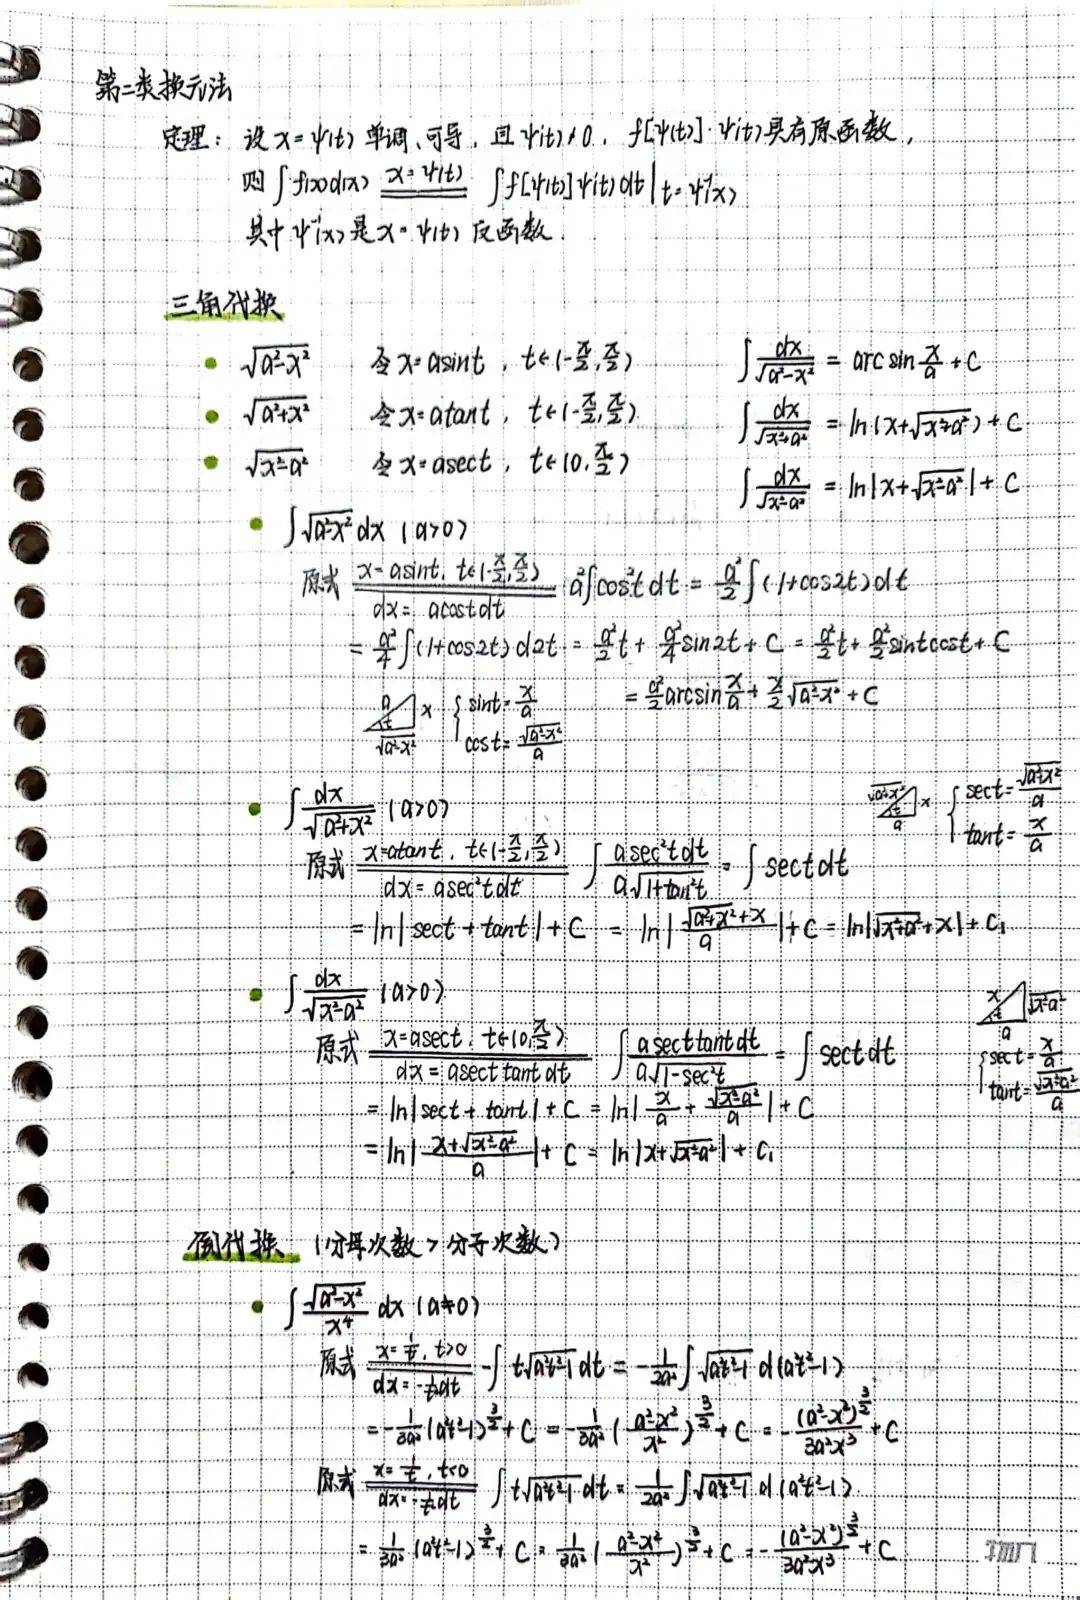 第二类换元法
定理：设 x=ψ(t) 单调、可导，且 ψ'(t)≠0，f[ψ(t)]·ψ'(t)具有原函数，
则 ∫f(x)d(x) x=ψ(t) ∫f[ψ(t)]ψ'(t)dt|t=ψ⁻¹(x)
其中 ψ⁻¹(x)是 x=ψ(t) 反函数.
三角代换
• √(a²-x²) 令 x=asint, t∈(-π/2,π/2) ∫dx/√(a²-x²) = arcsin x/a + C
• √(a²+x²) 令 x=atant, t∈(-π/2,π/2) ∫dx/√(x²+a²) = ln(x+√(x²+a²)) + C
• √(x²-a²) 令 x=asect, t∈(0,π/2) ∫dx/√(x²-a²) = ln|x+√(x²-a²)| + C
• ∫√(a²-x²) dx (a>0)
原式 x=asint, t∈(-π/2,π/2) / dx=acostdt a²∫cos²t dt = a²/2 ∫(1+cos2t)dt
= a²/4 ∫(1+cos2t)d2t = a²/2 t + a²/4 sin2t + C = a²/2 t + a²/2 sintcost + C
= a²/2 arcsin x/a + x/2 √(a²-x²) + C
a t x √(a²-x²) { sint=x/a
cost=√(a²-x²)/a
• ∫dx/√(a²+x²) (a>0) √(a²+x²) t x a { sect=√(a²+x²)/a
tant=x/a
原式 x=atant, t∈(-π/2,π/2) / dx=asec²tdt ∫asec²tdt/(a√(1+tan²t)) = ∫sectdt
= ln|sect+tant|+C = ln|(√(a²+x²)+x)/a|+C = ln|√(x²+a²)+x|+C₁
• ∫dx/√(x²-a²) (a>0) x t √(x²-a²) a
原式 x=asect, t∈(0,π/2) / dx=asecttantdt ∫asecttantdt/(a√(1-sec²t)) = ∫sectdt { sect=x/a
tant=√(x²-a²)/a
= ln|sect+tant|+C = ln|x/a+√(x²-a²)/a|+C
= ln|(x+√(x²-a²))/a|+C = ln|x+√(x²-a²)|+C₁
倒代换 (分母次数>分子次数)
• ∫√(a²-x²)/x⁴ dx (a≠0)
原式 x=1/t, t>0 / dx=-1/t²dt -∫t√(a²t²-1)dt = -1/2a² ∫√(a²t²-1) d(a²t²-1)
= -1/3a² (a²t²-1)^(3/2) + C = -1/3a² ((a²-x²)/x²)^(3/2) + C = -(a²-x²)^(3/2)/3a²x³ + C
原式 x=1/t, t<0 / dx=-1/t²dt ∫t√(a²t²-1)dt = 1/2a² ∫√(a²t²-1) d(a²t²-1)
= 1/3a² (a²t²-1)^(3/2) + C = 1/3a² ((a²-x²)/x²)^(3/2) + C = -(a²-x²)^(3/2)/3a²x³ + C